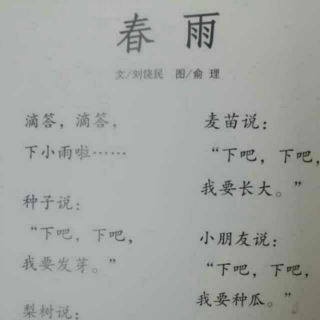 春 雨
文/刘饶民 图/俞 理
滴答，滴答，
下小雨啦……
种子说：
“下吧，下吧，
我要发芽。”
梨树说：
麦苗说：
“下吧，下吧，
我要长大。”
小朋友说：
“下吧，下吧，
我要种瓜。”